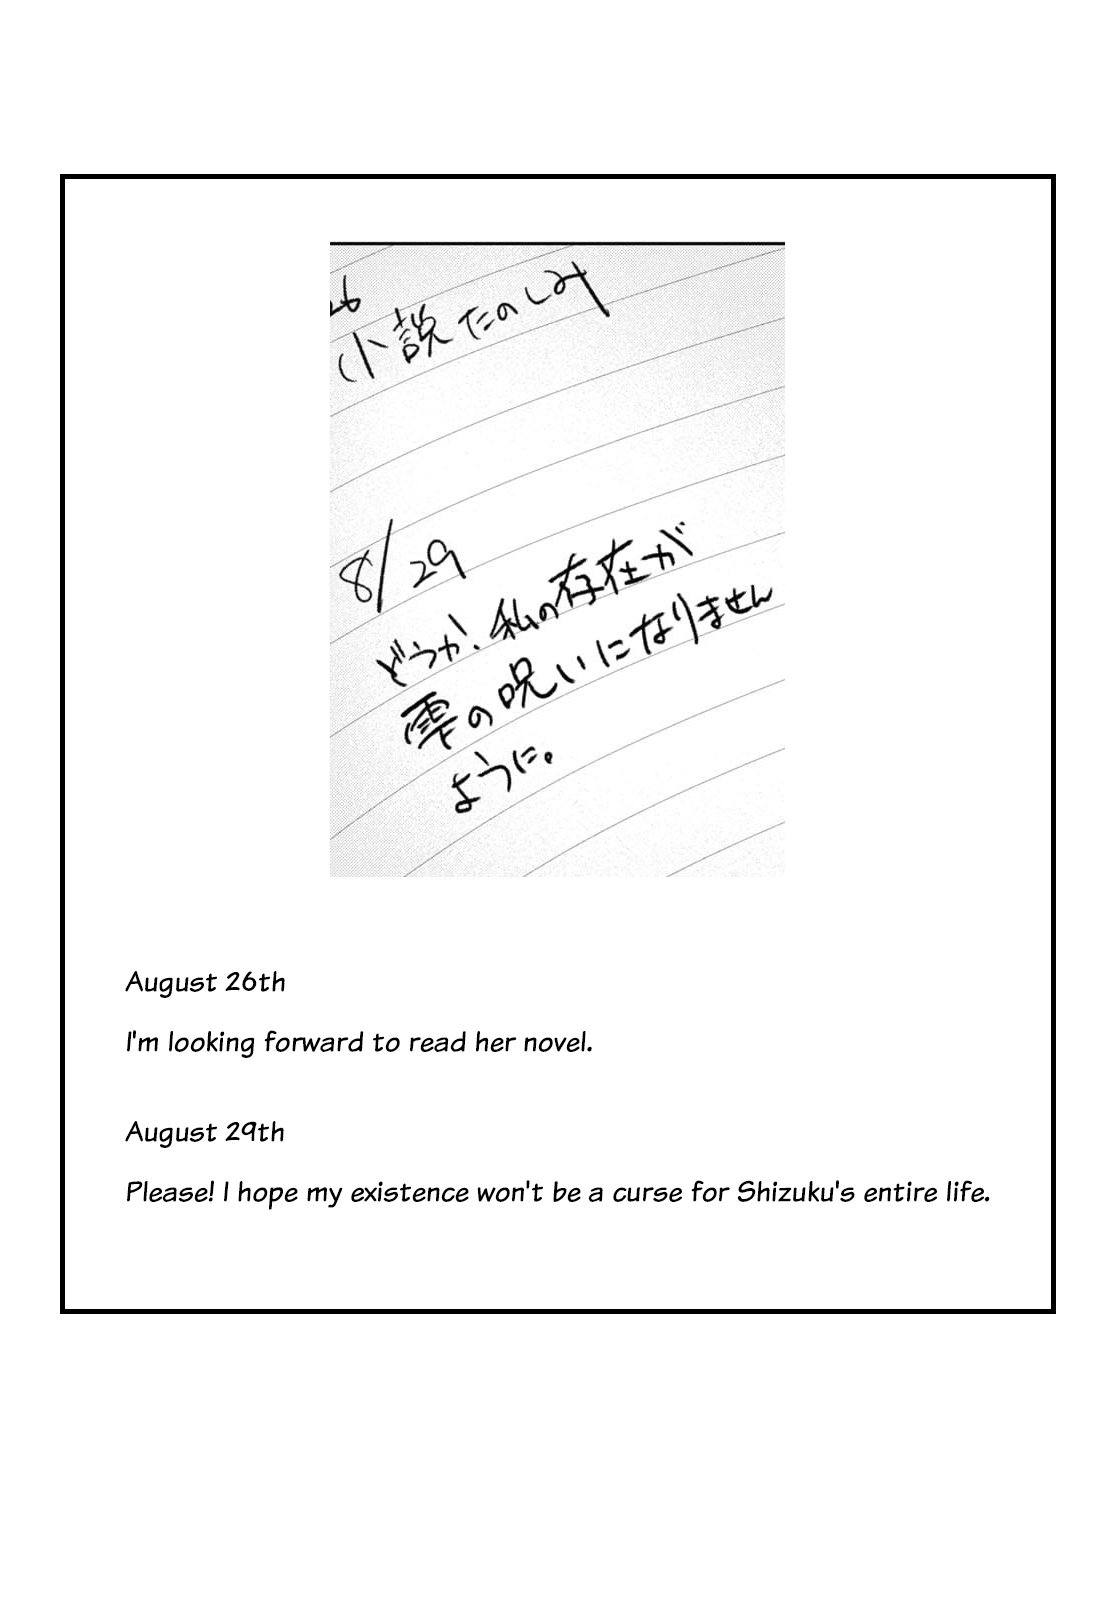 26
小説たのしみ
8/29
どうか!私の存在が
雫の呪いになりません
ように。
August 26th
I'm looking forward to read her novel.
August 29th
Please! I hope my existence won't be a curse for Shizuku's entire life.